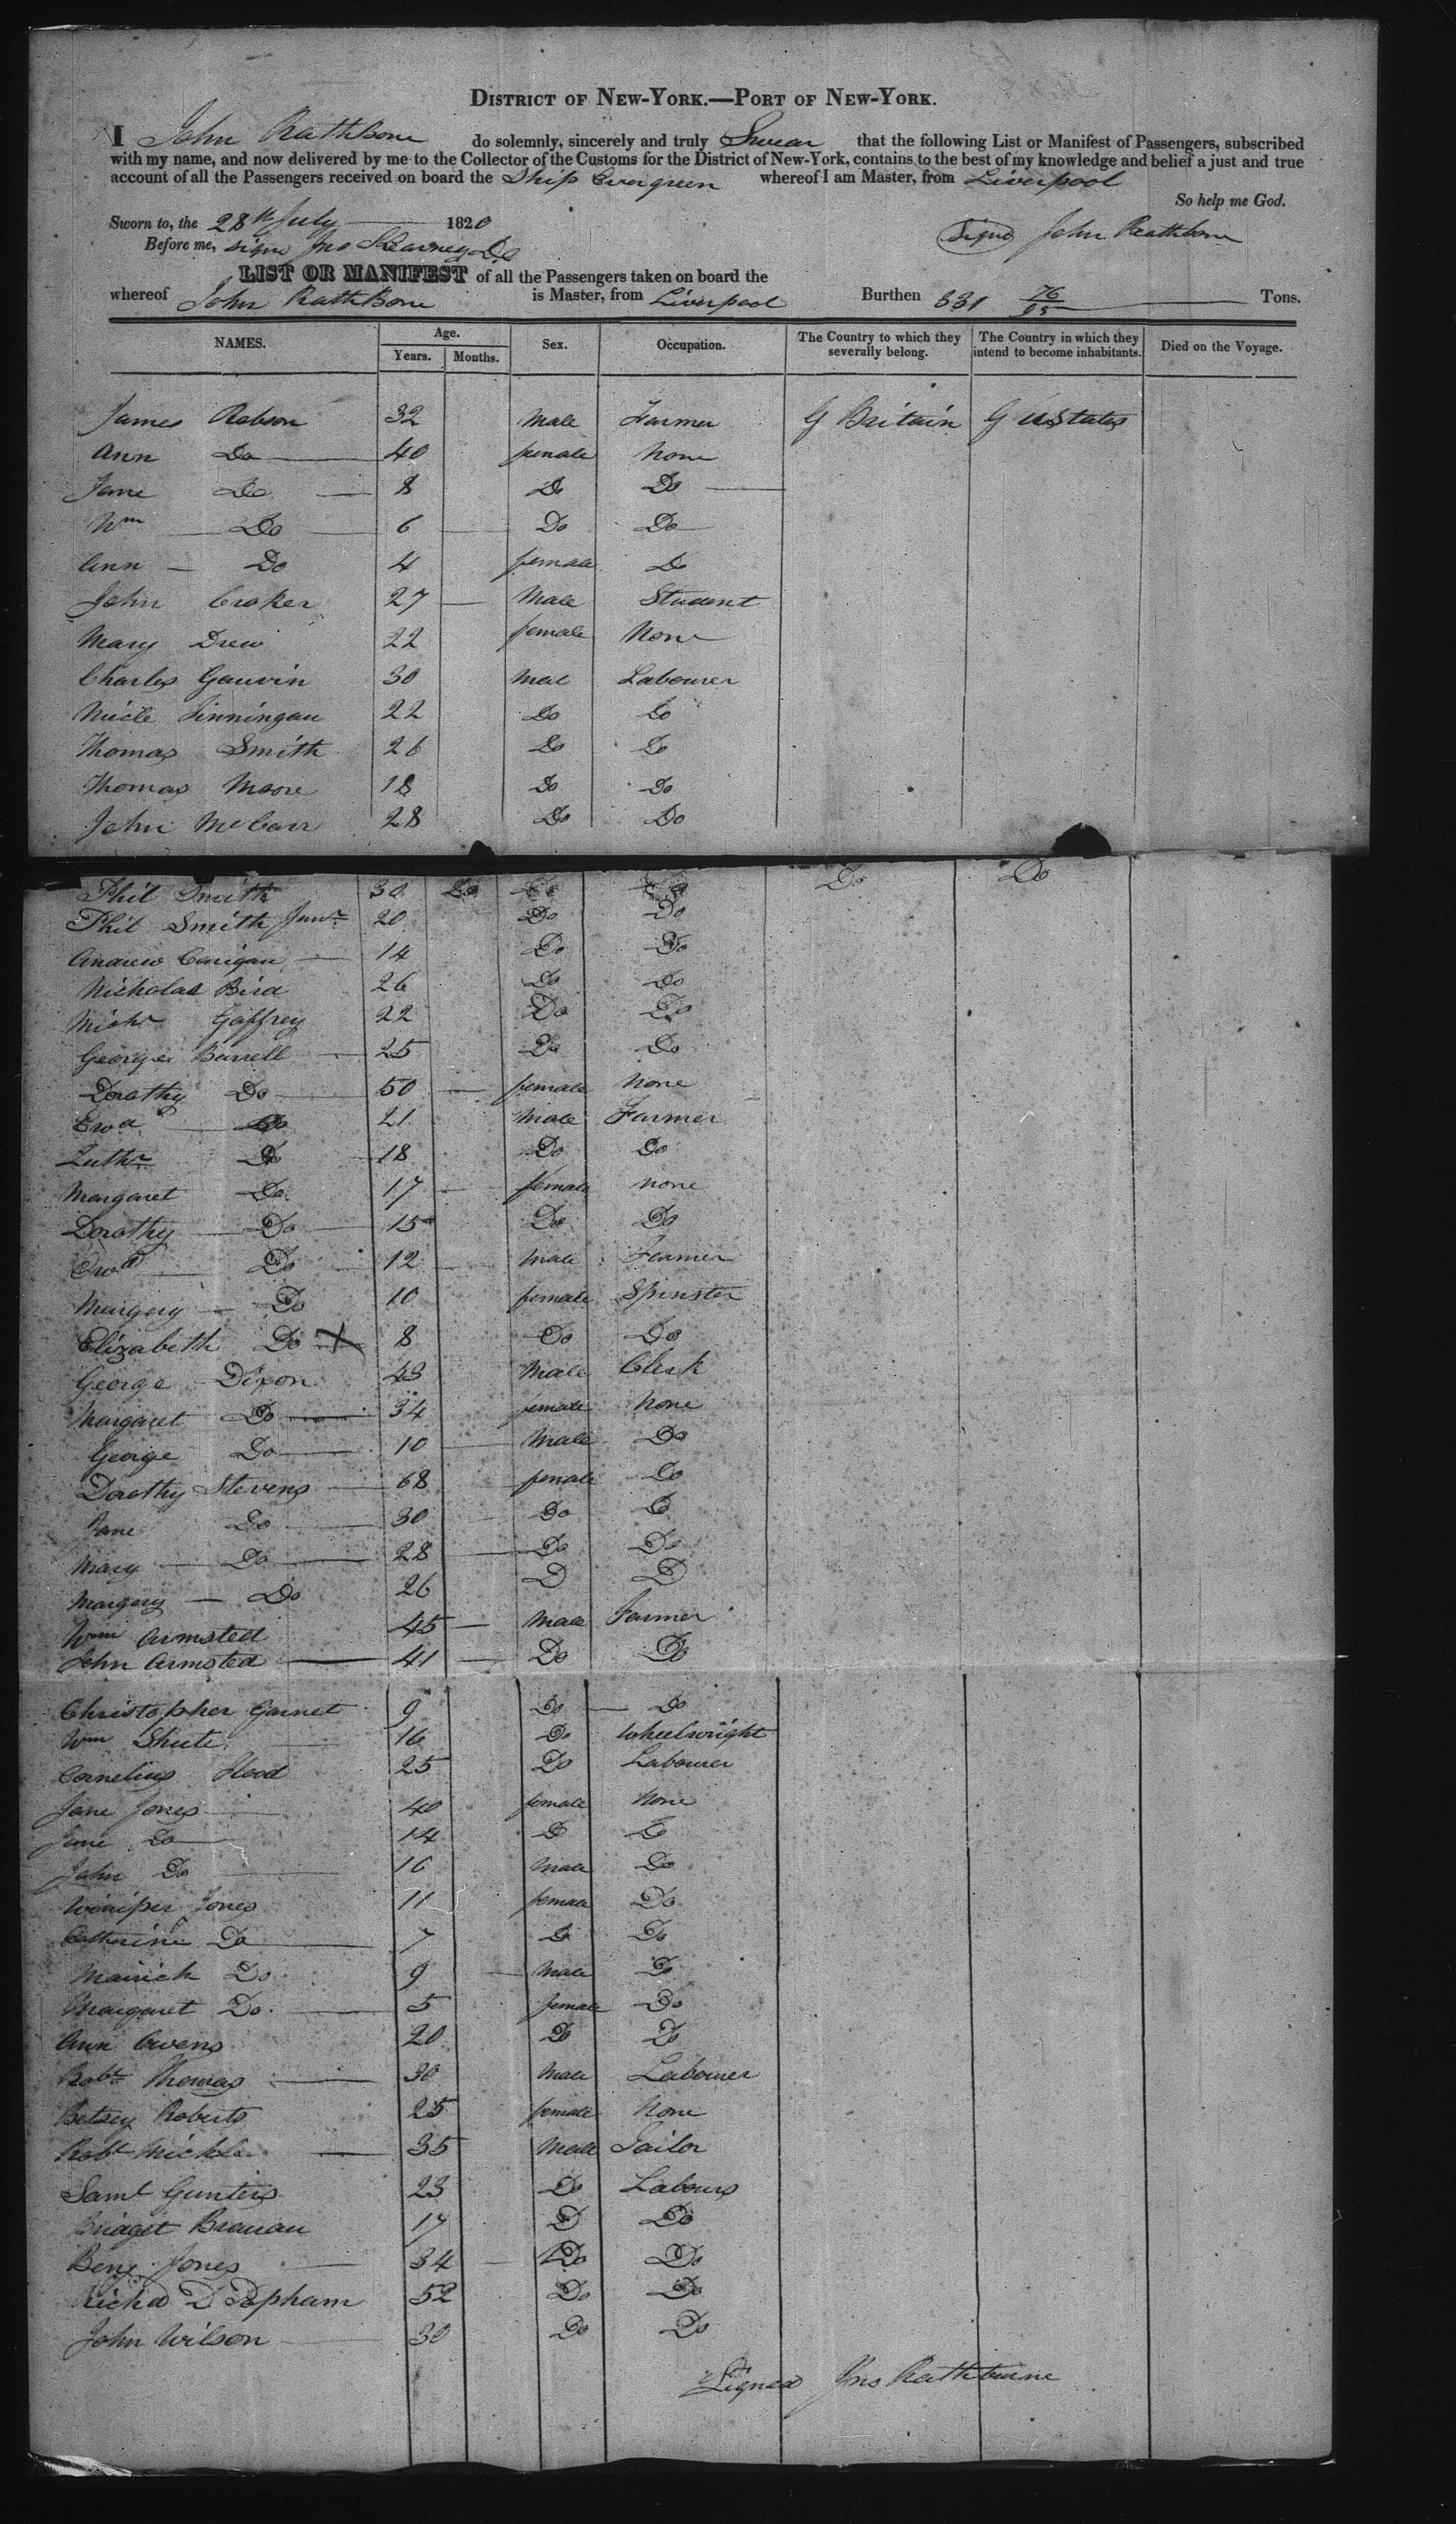 DISTRICT OF NEW-YORK.—PORT OF NEW-YORK.
I John Rathbone do solemnly, sincerely and truly Swear that the following List or Manifest of Passengers, subscribed
with my name, and now delivered by me to the Collector of the Customs for the District of New-York, contains to the best of my knowledge and belief a just and true
account of all the Passengers received on board the Ship Evergreen whereof I am Master, from Liverpool
So help me God.
Sworn to, the 28th July 1820 Signd John Rathbone
Before me, sign Jno Skearney
LIST OR MANIFEST of all the Passengers taken on board the
whereof John Rathbone is Master, from Liverpool Burthen 331 76/95 Tons.
NAMES. Age. Years. Months. Sex. Occupation. The Country to which they severally belong. The Country in which they intend to become inhabitants. Died on the Voyage.
James Robson 32 Male Farmer G Britain G UStates
Ann Do 40 female None
Jane Do 8 Do Do
Wm Do 6 Do Do
Ann Do 4 female Do
John Croker 27 Male Student
Mary Drew 22 female None
Charles Gauvin 30 Mal Labourer
Finningan 22 Do Do
Thomas Smith 26 Do Do
Thomas Moore 18 Do Do
John McCarr 28 Do Do
Phil Smith 30 Do Do Do Do Do
Phil Smith Junr 20 Do Do
Andrew Carigan 14 Do Do
Nicholas Bird 26 Do Do
Michl Gaffrey 22 Do Do
George Burrell 25 Do Do
Dorothy Do 50 female None
Ewd Do 21 Male Farmer
Luthr Do 18 Do Do
Margaret Do 17 female None
Dorothy Do 15 Do Do
Do 12 Male Farmer
Margery Do 10 female Spinster
Elizabeth Do X 8 Do Do
George Dixon 43 Male Clerk
Margaret Do 34 female None
George Do 10 Male Do
Dorothy Stevens 68 female Do
Jane Do 30 Do Do
Mary Do 28 Do Do
Margery Do 26 D D
Wm Armsted 45 Male Farmer
John Armsted 41 Do Do
Christopher Garnet 9 Do Do
Wm Shute 16 Do Wheelwright
Cornelius Hood 25 Do Labourer
Jane Jones 40 female None
Jane Do 14 D Do
John Do 16 Male Do
Winiper Jones 11 female Do
Catherine Do 7 Do Do
Do 9 Male Do
Margaret Do 5 female Do
Ann Owens 20 Do Do
Robt Thomas 30 Male Labourer
Betsey Roberts 25 female None
Robt Mickle 35 Male Tailor
Saml Gunters 23 Do Labours
Bridget Branan 17 D Do
Benj Jones 34 Do Do
Richd D Popham 52 Do Do
John Wilson 30 Do Do
Signed Jno Rathbone